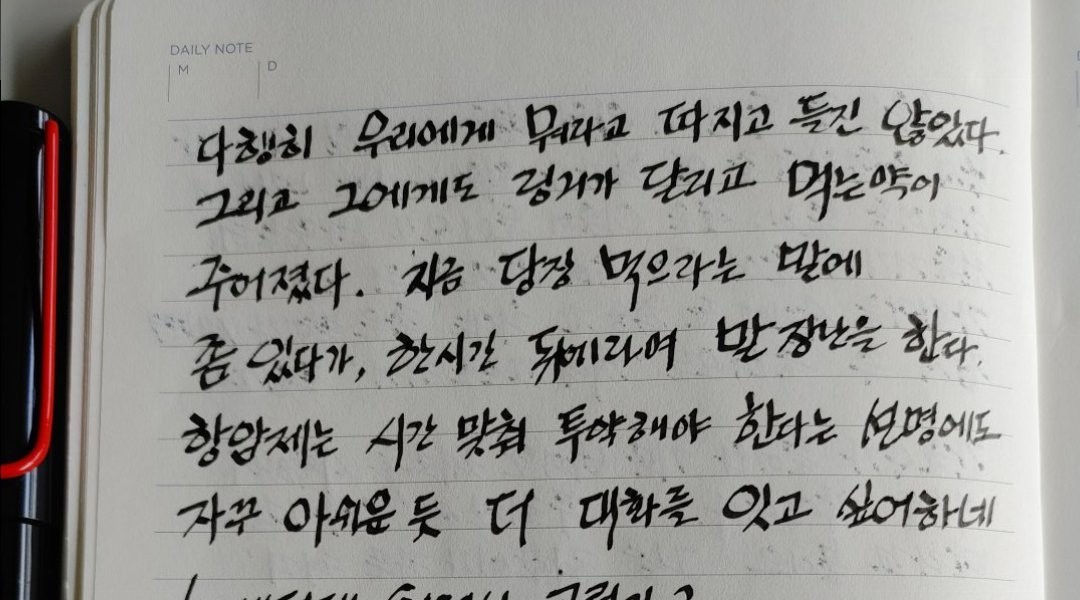 DAILY NOTE
M D
다행히 우리에게 뭐라고 따지고 들진 않았다.
그리고 그에게도 링거가 달리고 먹는 약이
주어졌다. 지금 당장 먹으라는 말에
좀 있다가, 한시간 뒤에라며 말장난을 한다.
항암제는 시간 맞춰 투약해야 한다는 설명에도
자꾸 아쉬운 듯 더 대화를 잇고 싶어하네